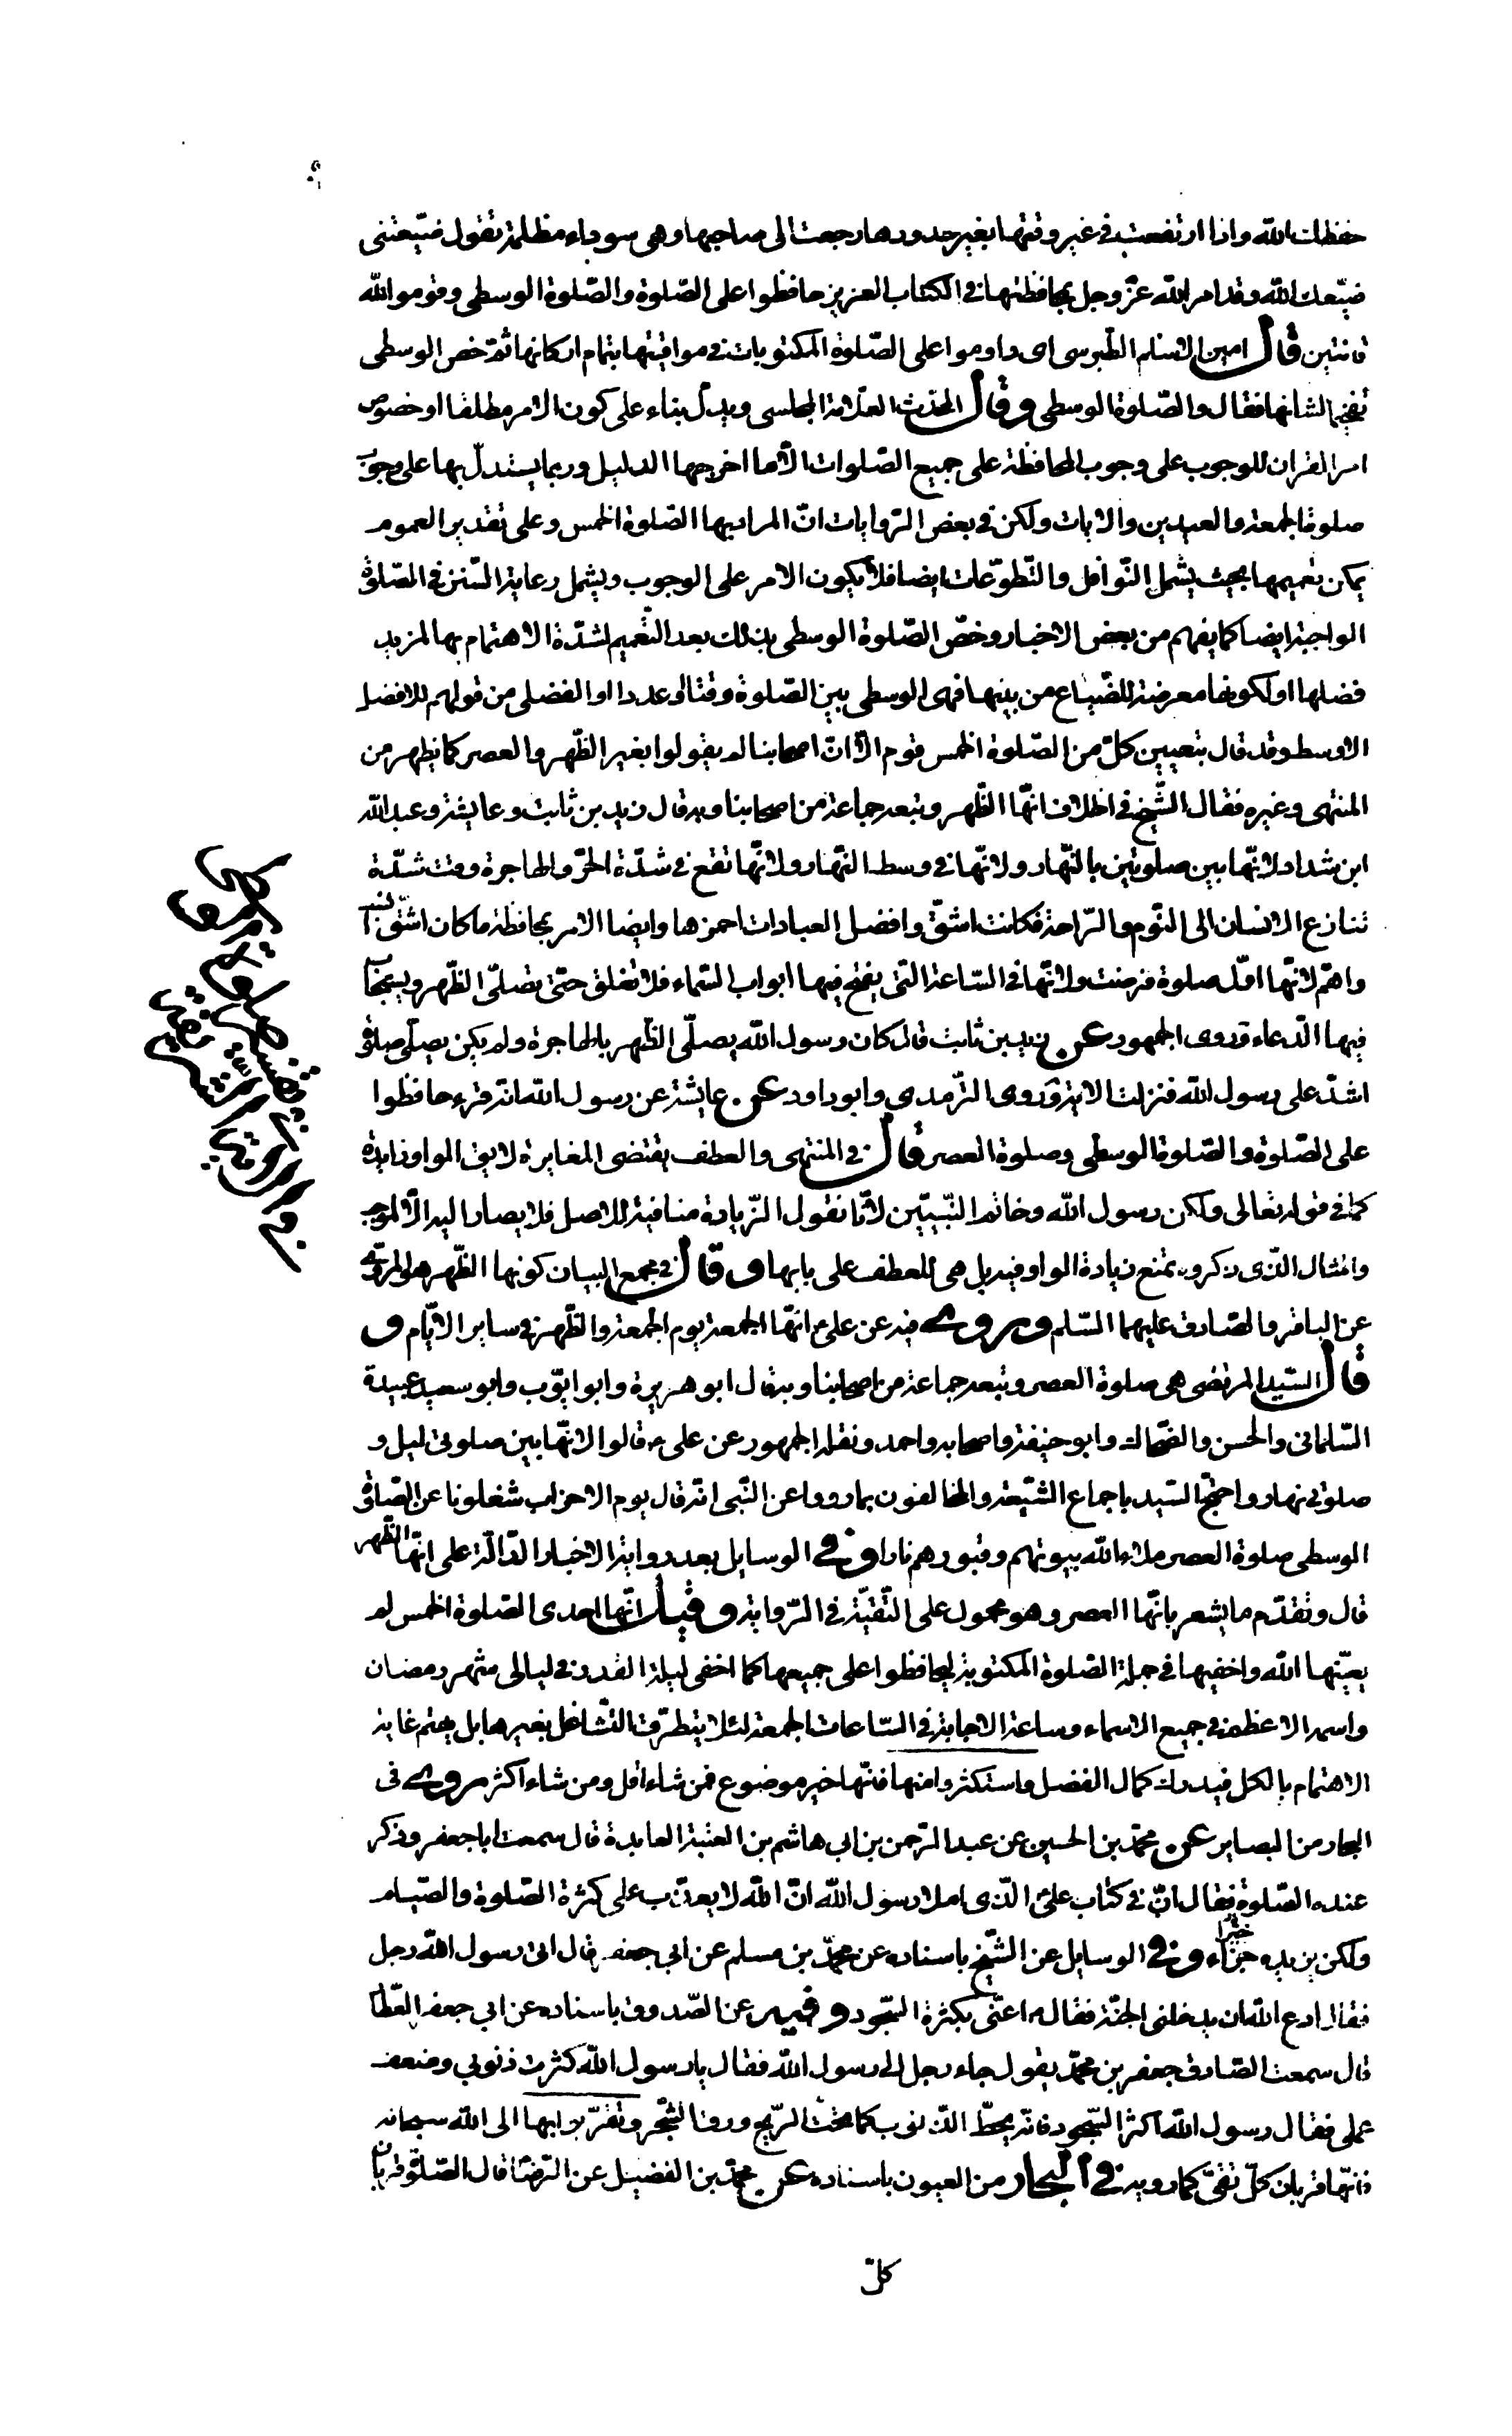 حفظك الله واذا ارتفعت في غير وقتها بغير حدودها رجعت الى صاحبها وهى سوداء مظلمة تقول ضيّعتنى
ضيّعك الله وقد امر الله عزّ وجل بمحافظتها في الكتاب العزيز حافظوا على الصّلوة والصّلوة الوسطى وقوموا لله
قانتين قال امين الاسلام الطبرسى اى داوموا على الصّلوة المكتوبات في مواقيتها بتمام اركانها ثمّ خص الوسطى
تفخيما لشانها فقال والصّلوة الوسطى وقال المحدّث العلّامة المجلسى ويدلّ بناء على كون الامر مطلقا او خصوص
امر القران للوجوب على وجوب المحافظة على جميع الصّلوات الّا ما اخرجها الدليل وربما يستدلّ بها على وجوب
صلوة الجمعة والعيدين والايات ولكن في بعض الرّوايات انّ المراد بها الصّلوة الخمس وعلى تقدير العموم
يمكن تعميمها بحيث يشمل النّوافل والتّطوّعات ايضا فلا يكون الامر على الوجوب ويشمل رعاية السّنن في الصّلوة
الواجبة ايضا كما يفهم من بعض الاخبار وخصّ الصّلوة الوسطى بذلك بعد التّعميم لشدّة الاهتمام بها لمزيد
فضلها او لكونها معرضة للضّياع من بينها فهى الوسطى بين الصّلوة وقتا او عددا او الفضلى من قولهم للافضل
الاوسط وقد قال بتعيين كلّ من الصّلوة الخمس قوم الّا انّ اصحابنا لم يقولوا بغير الظّهر والعصر كما يظهر من
المنتهى وغيره فقال الشّيخ في الخلاف انّها الظّهر وتبعه جماعة من اصحابنا وبه قال زيد بن ثابت وعايشة وعبد الله
ابن شداد لانّها بين صلوتين بالنّهار ولانّها في وسط النّهار ولانّها تقع في شدّة الحرّ والهاجرة وقت شدّة
تنازع الانسان الى النّوم والرّاحة فكانت اشقّ وافضل العبادات احمزها وايضا الامر بمحافظة ما كان اشقّ انسب
واهمّ لانّها اوّل صلوة فرضت ولانّها في السّاعة الّتى يفتح فيها ابواب السّماء فلا تغلق حتّى تصلّى الظّهر ويستجاب
فيها الدّعاء وروى الجمهور عن زيد بن ثابت قال كان رسول الله يصلّى الظّهر بالهاجرة ولم يكن يصلّى صلوة
اشدّ على رسول الله فنزلت الاية وروى التّرمدى وابو داود عن عايشة عن رسول الله انّه قرء حافظوا
على الصّلوة والصّلوة الوسطى وصلوة العصر قال في المنتهى والعطف يقتضى المغايرة لا يق الواو زايدة
كما في قوله تعالى ولكن رسول الله وخاتم النّبيّين لانّا نقول الزّيادة منافية للاصل فلا يصار اليه الّا لموجب
والمثال الّذى ذكروه نمنع زيادة الواو فيه بل هى للعطف على بابها وقال في مجمع البيان كونها الظّهر هو المروىّ
عن الباقر والصّادق عليهما السّلم وروى فيه عن علىّ انّها الجمعة يوم الجمعة والظّهر في ساير الايّام و
قال السّيد المرتضى هى صلوة العصر وتبعه جماعة من اصحابنا وبه قال ابو هريرة وابو ايّوب وابو سعيد عبيدة
السّلمانى والحسن والضّحاك وابو حنيفة واصحابه واحمد ونقله الجمهور عن على قالوا لانّها بين صلوتى ليل و
صلوتى نهار واحتجّ السّيد باجماع الشّيعة والمخالفون بما رووا عن النّبى انّه قال يوم الاحزاب شغلونا عن الصّلوة
الوسطى صلوة العصر ملاء الله بيوتهم وقبورهم نارا وفي الوسايل بعد رواية الاخبار الدّالّة على انّها الظّهر
قال وتقدّم ما يشعر بانّها العصر وهو محمول على التّقيّة في الرّواية وقيل انّها احدى الصّلوة الخمس لم
يعيّنها الله واخفيها في جملة الصّلوة المكتوبة ليحافظوا على جميعها كما اخفى ليلة القدر في ليالى شهر رمضان
واسمه الاعظم في جميع الاسماء وساعة الاجابة في السّاعات الجمعة لئلا يتطرّق التّشاغل بغيرها بل يهتم غاية
الاهتمام بالكل فيدرك كمال الفضل واستكثروا منها فانّها خير موضوع فمن شاء اقل ومن شاء اكثر روى فى
البحار من البصاير عن محمّد بن الحسين عن عبد الرّحمن بن ابى هاشم بن العتبة العابدة قال سمعت ابا جعفر وذكر
عنده الصّلوة فقال انّ في كتاب علىّ الّذى املا رسول الله انّ الله لا يعذّب على كثرة الصّلوة والصّيام
ولكن يزيده جزاء خيرا وفي الوسايل عن الشّيخ باسناده عن محمّد بن مسلم عن ابى جعفر قال اتى رسول الله رجل
فقال ادع الله ان يدخلنى الجنّة فقال له اعنّى بكثرة السّجود وفيه عن الصّدوق باسناده عن ابى جعفر العطّار
قال سمعت الصّادق جعفر بن محمّد يقول جاء رجل الى رسول الله فقال يا رسول الله كثرت ذنوبى وضعف
عملى فقال رسول الله اكثر السّجود فانّه يحطّ الذّنوب كما تحتّ الرّيح ورق الشّجر وتقرّبوا بها الى الله سبحانه
فانّها قربان كلّ تقىّ كما رويه في البحار من العيون باسناده عن محمّد بن الفضيل عن الرّضا قال الصّلوة قربان
كلّ